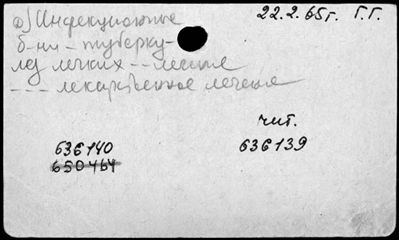 а) Инфекционные 22.2.65г. Г.Г.
б-ни - туберку-
лез легких - - лечение
- - - лекарственное лечение
чит.
636140 636139
650464